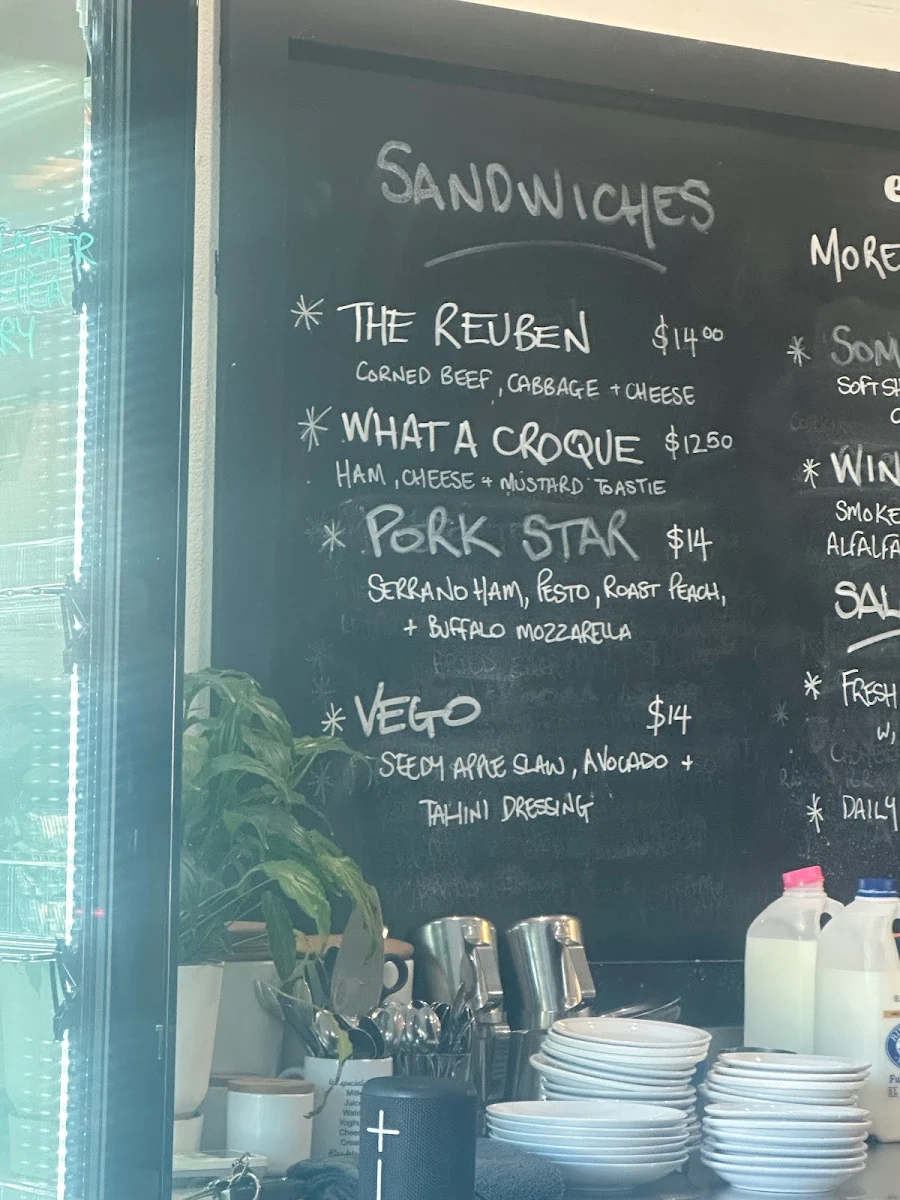 SANDWICHES
* THE REUBEN $14.00
CORNED BEEF, CABBAGE + CHEESE
* WHAT A CROQUE $12.50
HAM, CHEESE + MUSTARD TOASTIE
* PORK STAR $14
SERRANO HAM, PESTO, ROAST PEACH,
+ BUFFALO MOZZARELLA
* VEGO $14
SEEDY APPLE SLAW, AVOCADO +
TAHINI DRESSING
MORE
* SOM
SOFT SH
* WIN
SMOKE
ALFALFA
SAL
* FRESH
W,
* DAILY